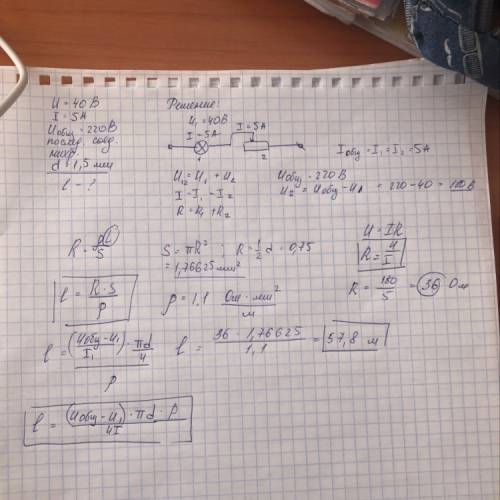 U = 40 В
I = 5А
Uобщ = 220 В
послед. соед.
нихр.
d = 1,5 мм
l - ?
Решение:
U₁ = 40В
I = 5А
I = 5А
1
2
Iобщ = I₁ = I₂ = 5А
U₁₂ = U₁ + U₂
I = I₁ = I₂
R = R₁ + R₂
Uобщ = 220 В
U₂ = Uобщ - U₁ = 220 - 40 = 180 В
R = ρl/S
S = πR² ; R = ½ d = 0,75
= 1,76625 мм²
U = IR
R = U/I
l = R·S/ρ
ρ = 1,1 Ом·мм²/м
R = 180/5 = 36 Ом
l = ((Uобщ - U₁)/I₁ · πd/4)/ρ
l = 36 · 1,76625/1,1 = 57,8 м
l = (Uобщ - U₁) · πd · ρ/4I